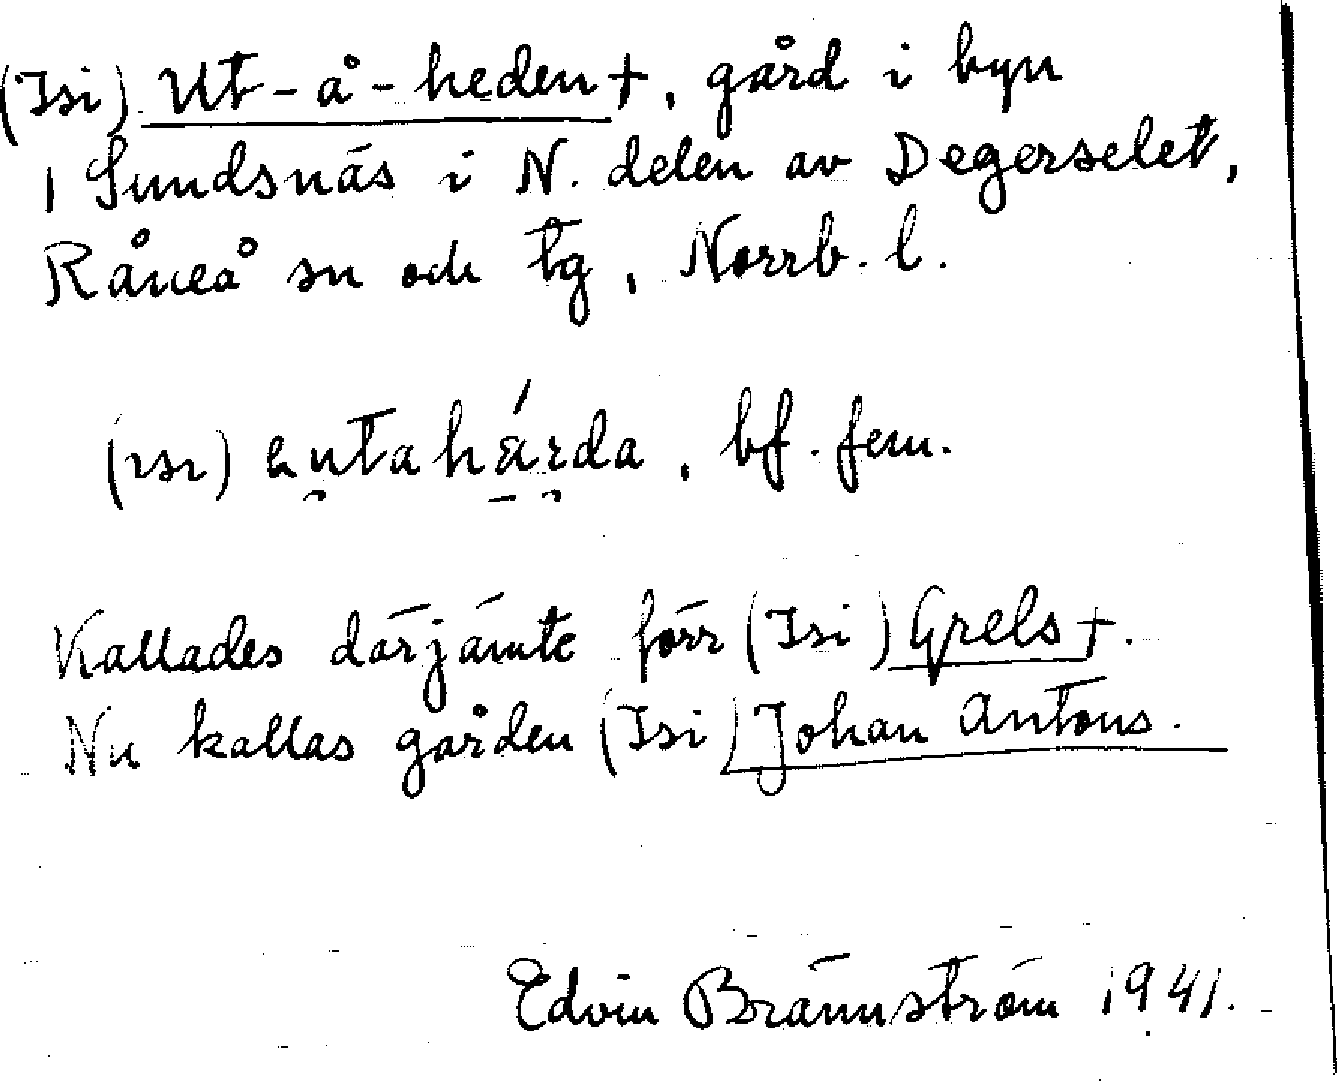 (Isi) Ut-å-heden+, gård i byn
Sundsnäs i N. delen av Degerselet,
Råneå sn och tg, Norrb. l.
bf. fem.
Kallades därjämte förr (Isi) Grels+.
Nu kallas gården (Isi) Johan Antons.
Edvin Brännström 1941.